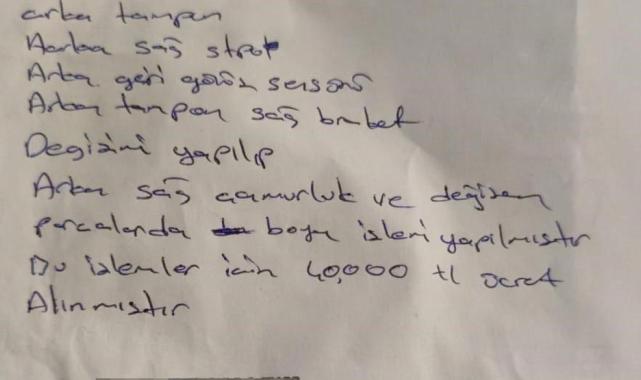 arka tampon
Aarka sağ strop
Arka geri görüş sensörü
Arka tampon sağ braket
Değişimi yapılıp
Arka sağ çamurluk ve değişen
parcalarda boya işleri yapılmıştır
Bu işlemler icin 40,000 tl ücret
Alınmıştır